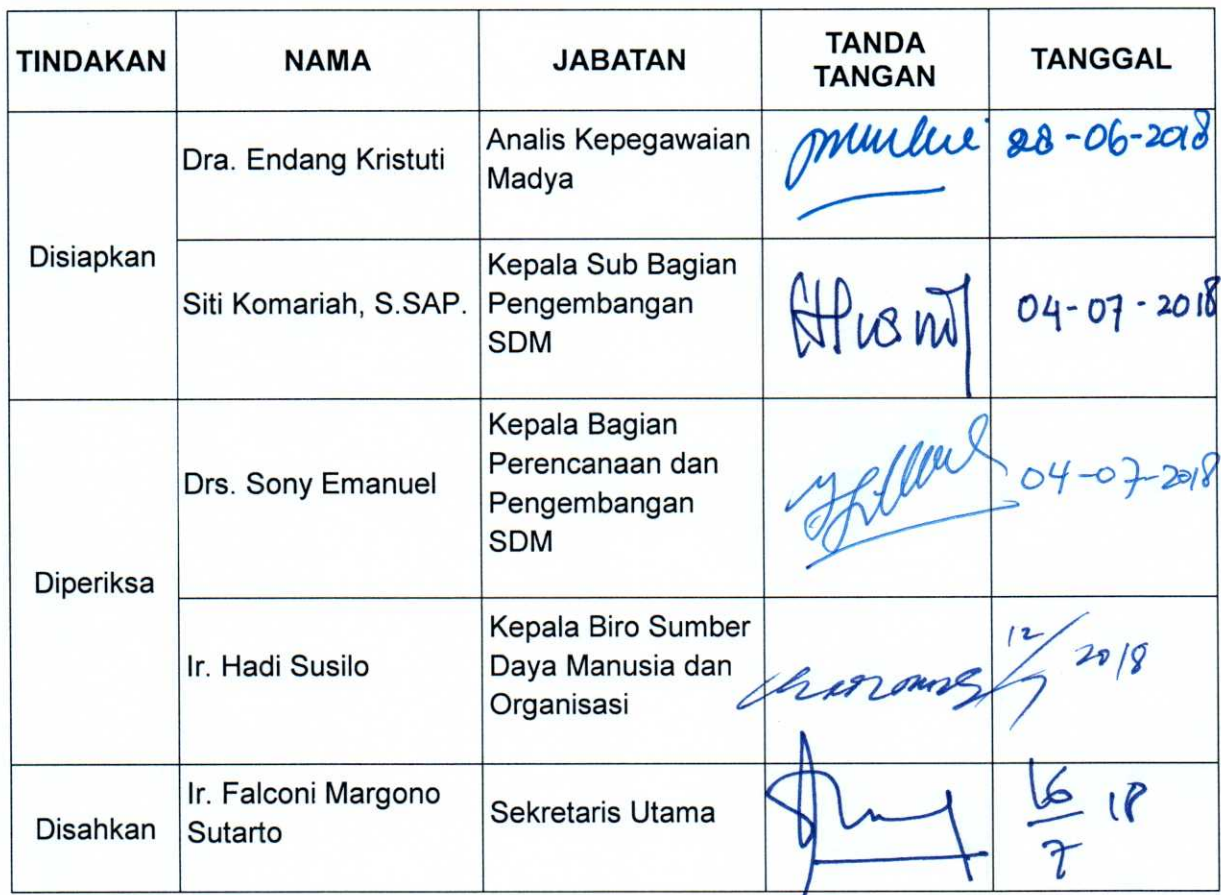 TINDAKAN NAMA JABATAN TANDA
TANGAN TANGGAL
Disiapkan
Dra. Endang Kristuti
Analis Kepegawaian
Madya
28-06-2018
Siti Komariah, S.SAP.
Kepala Sub Bagian
Pengembangan
SDM
04-07-2018
Diperiksa
Drs. Sony Emanuel
Kepala Bagian
Perencanaan dan
Pengembangan
SDM
04-07-2018
Ir. Hadi Susilo
Kepala Biro Sumber
Daya Manusia dan
Organisasi
12/7 2018
Disahkan
Ir. Falconi Margono
Sutarto
Sekretaris Utama
16/7 18